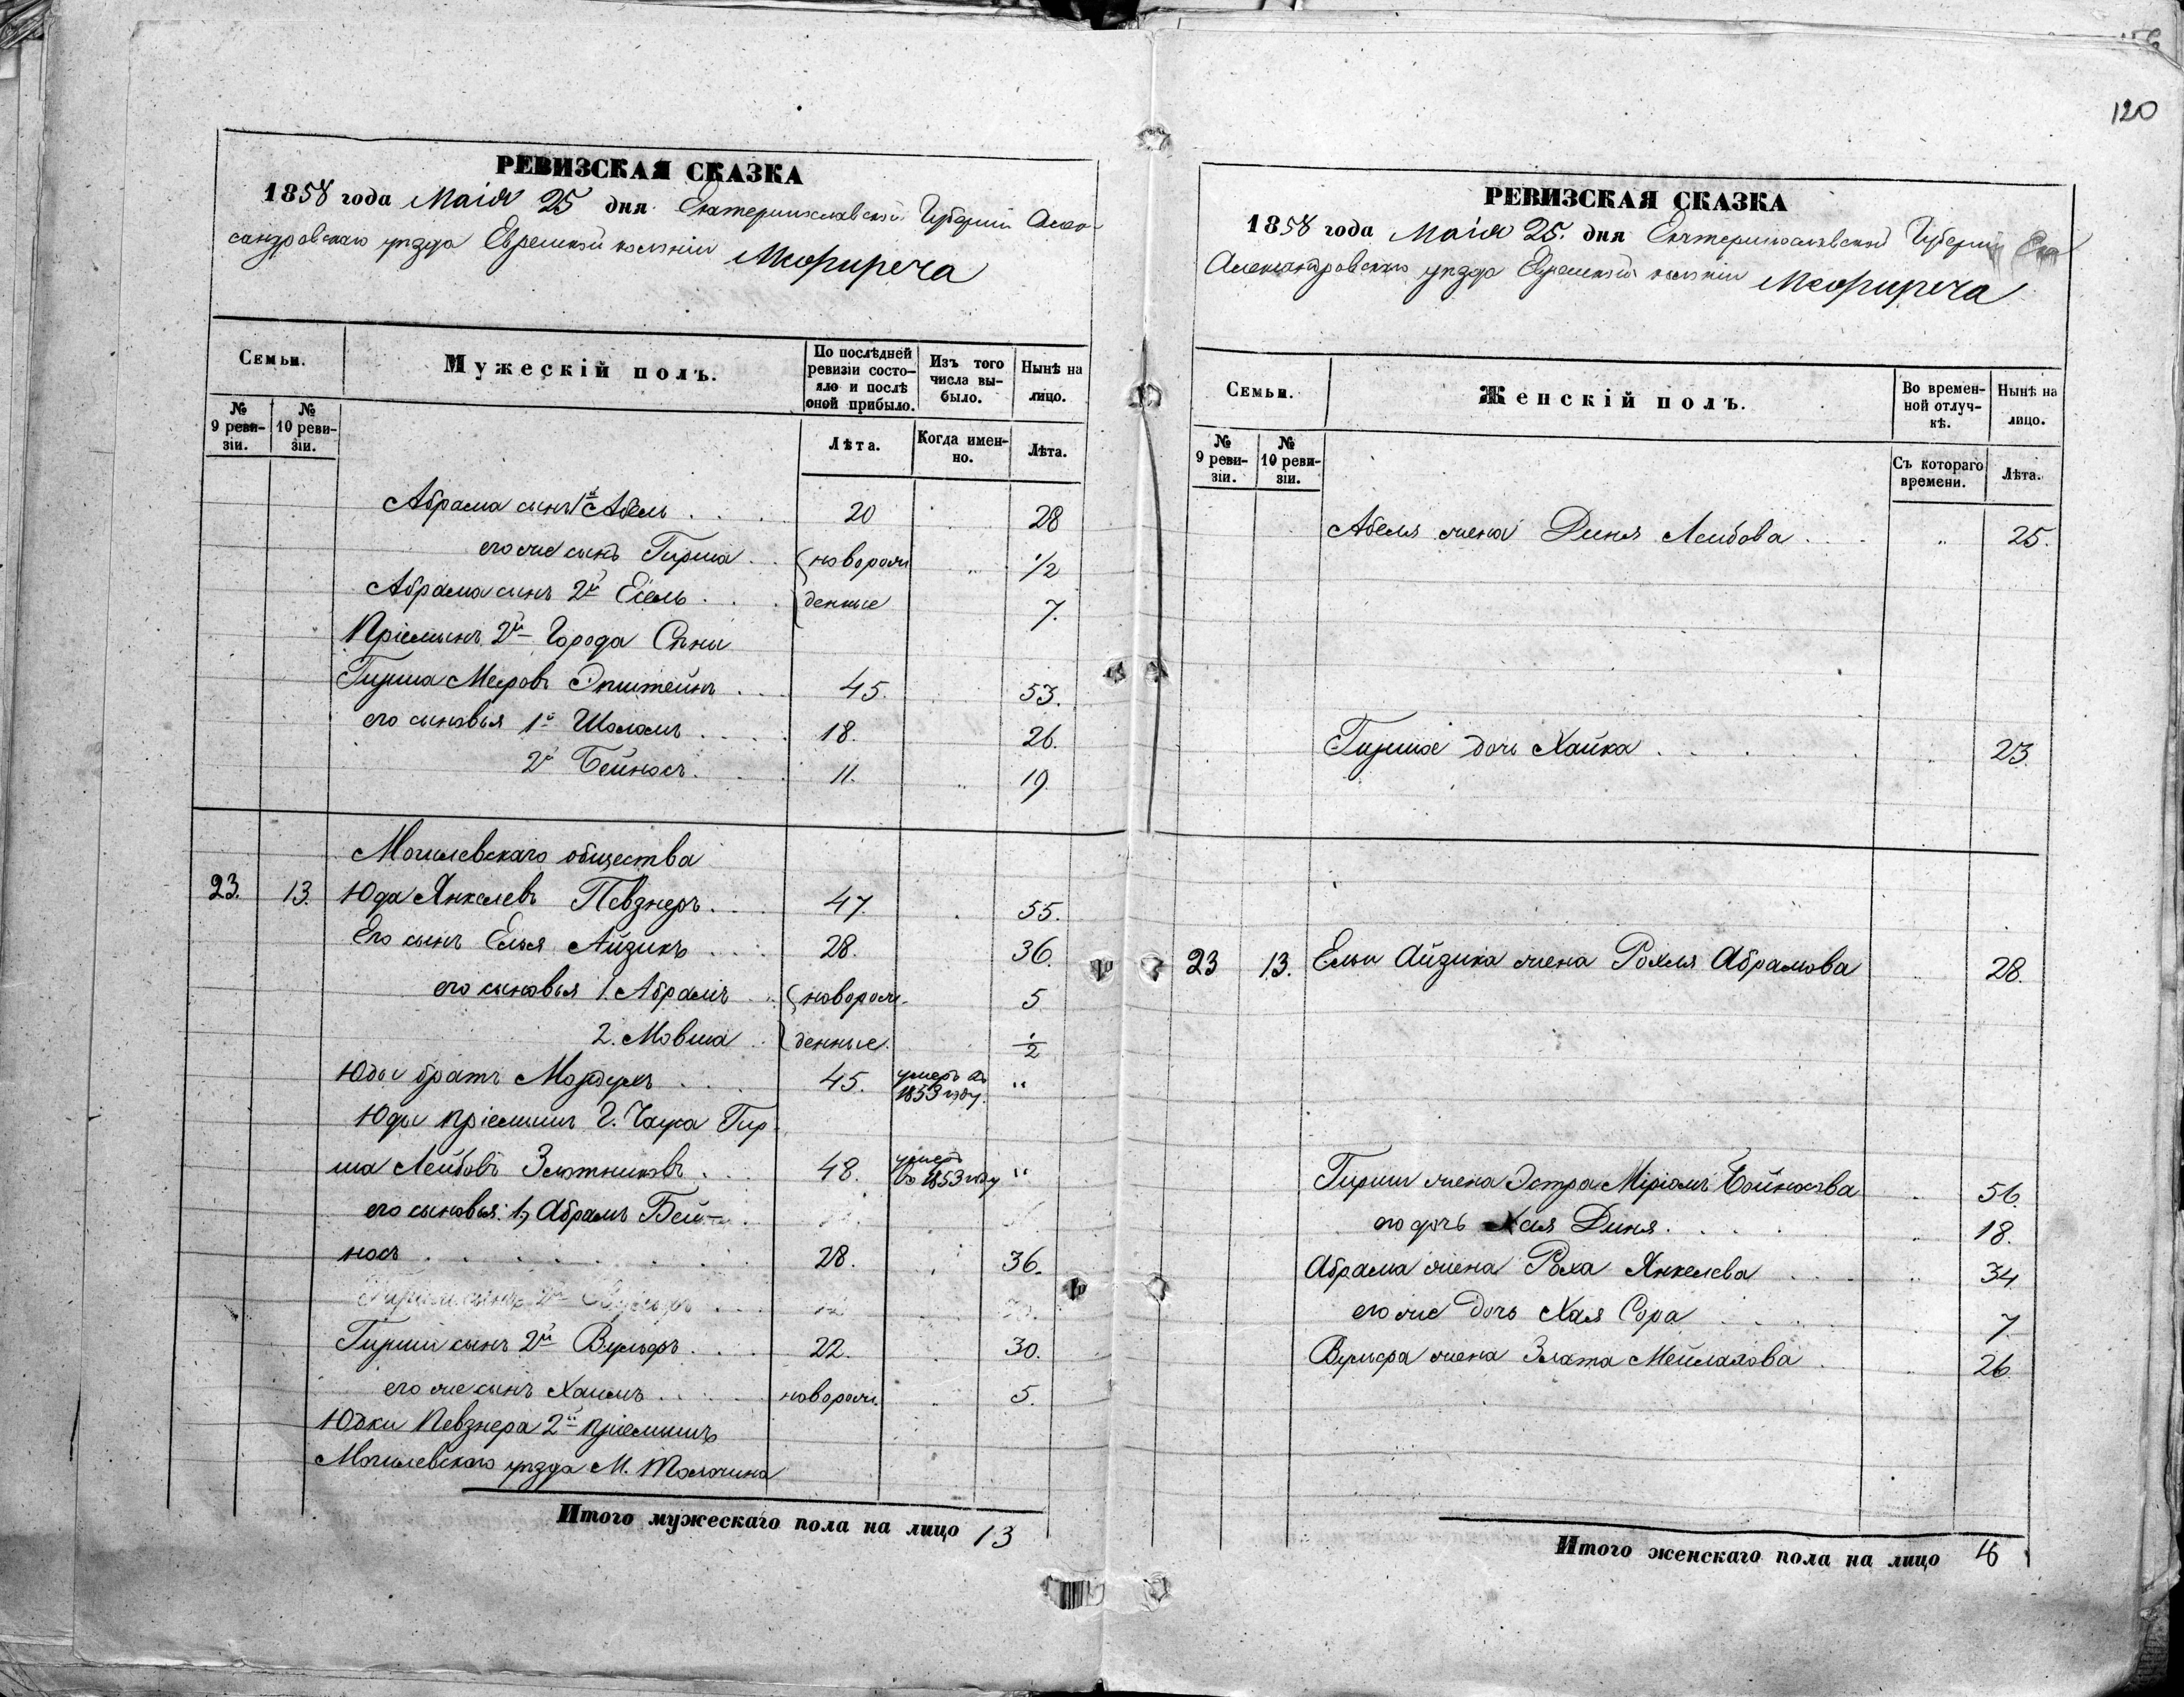 120
РЕВИЗСКАЯ СКАЗКА
1858 года Маія 25 дня Екатеринославской Губерніи Алек-
сандровскаго уѣзда Еврейской колоніи Межиречъ
Семьи.
Мужескій полъ.
По послѣдней ревизіи состояло и послѣ оной прибыло.
Изъ того числа выбыло.
Нынѣ на лицо.
№ 9 реви-зіи.
№ 10 реви-зіи.
Лѣта.
Когда имен-но.
Лѣта.
Абрама сынъ 1й Абель . . 20 28
его же сынъ Гирша . . новорож 1/2
Абрама сынъ 2й Есель . . денные 7.
Пріемышъ 2й Города Сѣны
Гирша Мееровъ Эпштейнъ . . 45. 53.
его сыновья 1й Шоломъ . . . 18. 26.
2й Бейносъ. . 11. " 19.
Могилевскаго общества
23. 13. Юда Янкелевъ Певзнеръ . . 47. 55.
Его сынъ Елья Айзикъ . . . 28. 36.
его сыновья 1. Абрамъ . . новорож. 5
2. Мовша . . денные. 1/2
Юды братъ Мордухъ . . . 45. умеръ въ 1853 году. "
Юды пріемышъ Г. Чауса Гир-
ша Лейбовъ Золотниковъ . . . 48. умеръ въ 1853 году "
его сыновья: 1, Абрамъ Бей-
носъ . . . . . . . 28. 36.
Гирши сынъ 2й Вульфъ . . . 22. 30.
его же сынъ Хаимъ . . . новорож. " 5.
Юдки Певзнера 2й пріемышъ
Могилевскаго уѣзда М. Толочина
Итого мужескаго пола на лицо 13
РЕВИЗСКАЯ СКАЗКА
1858 года Маія 25. дня Екатеринославской Губерніи
Александровскаго уѣзда Еврейской колоніи Межиречъ
Семьи.
Женскій полъ.
Во времен-ной отлуч-кѣ.
Нынѣ на лицо.
№ 9 реви-зіи.
№ 10 реви-зіи.
Съ котораго времени.
Лѣта.
Абеля жена Диня Лейбова . . . " 25.
Гирши дочь Хайка . . . . " 23.
23 13. Ельи Айзика жена Рохля Абрамова " 28.
Гирши жена Эстра Міріамъ Бойносова " 56.
его дочь Хая Диня. . . . . " 18.
Абрама жена Роха Янкелева . . . " 34.
его же дочь Хая Сора . . . 7.
Вульфа жена Злата Мейлахова . . 26.
Итого женскаго пола на лицо 8